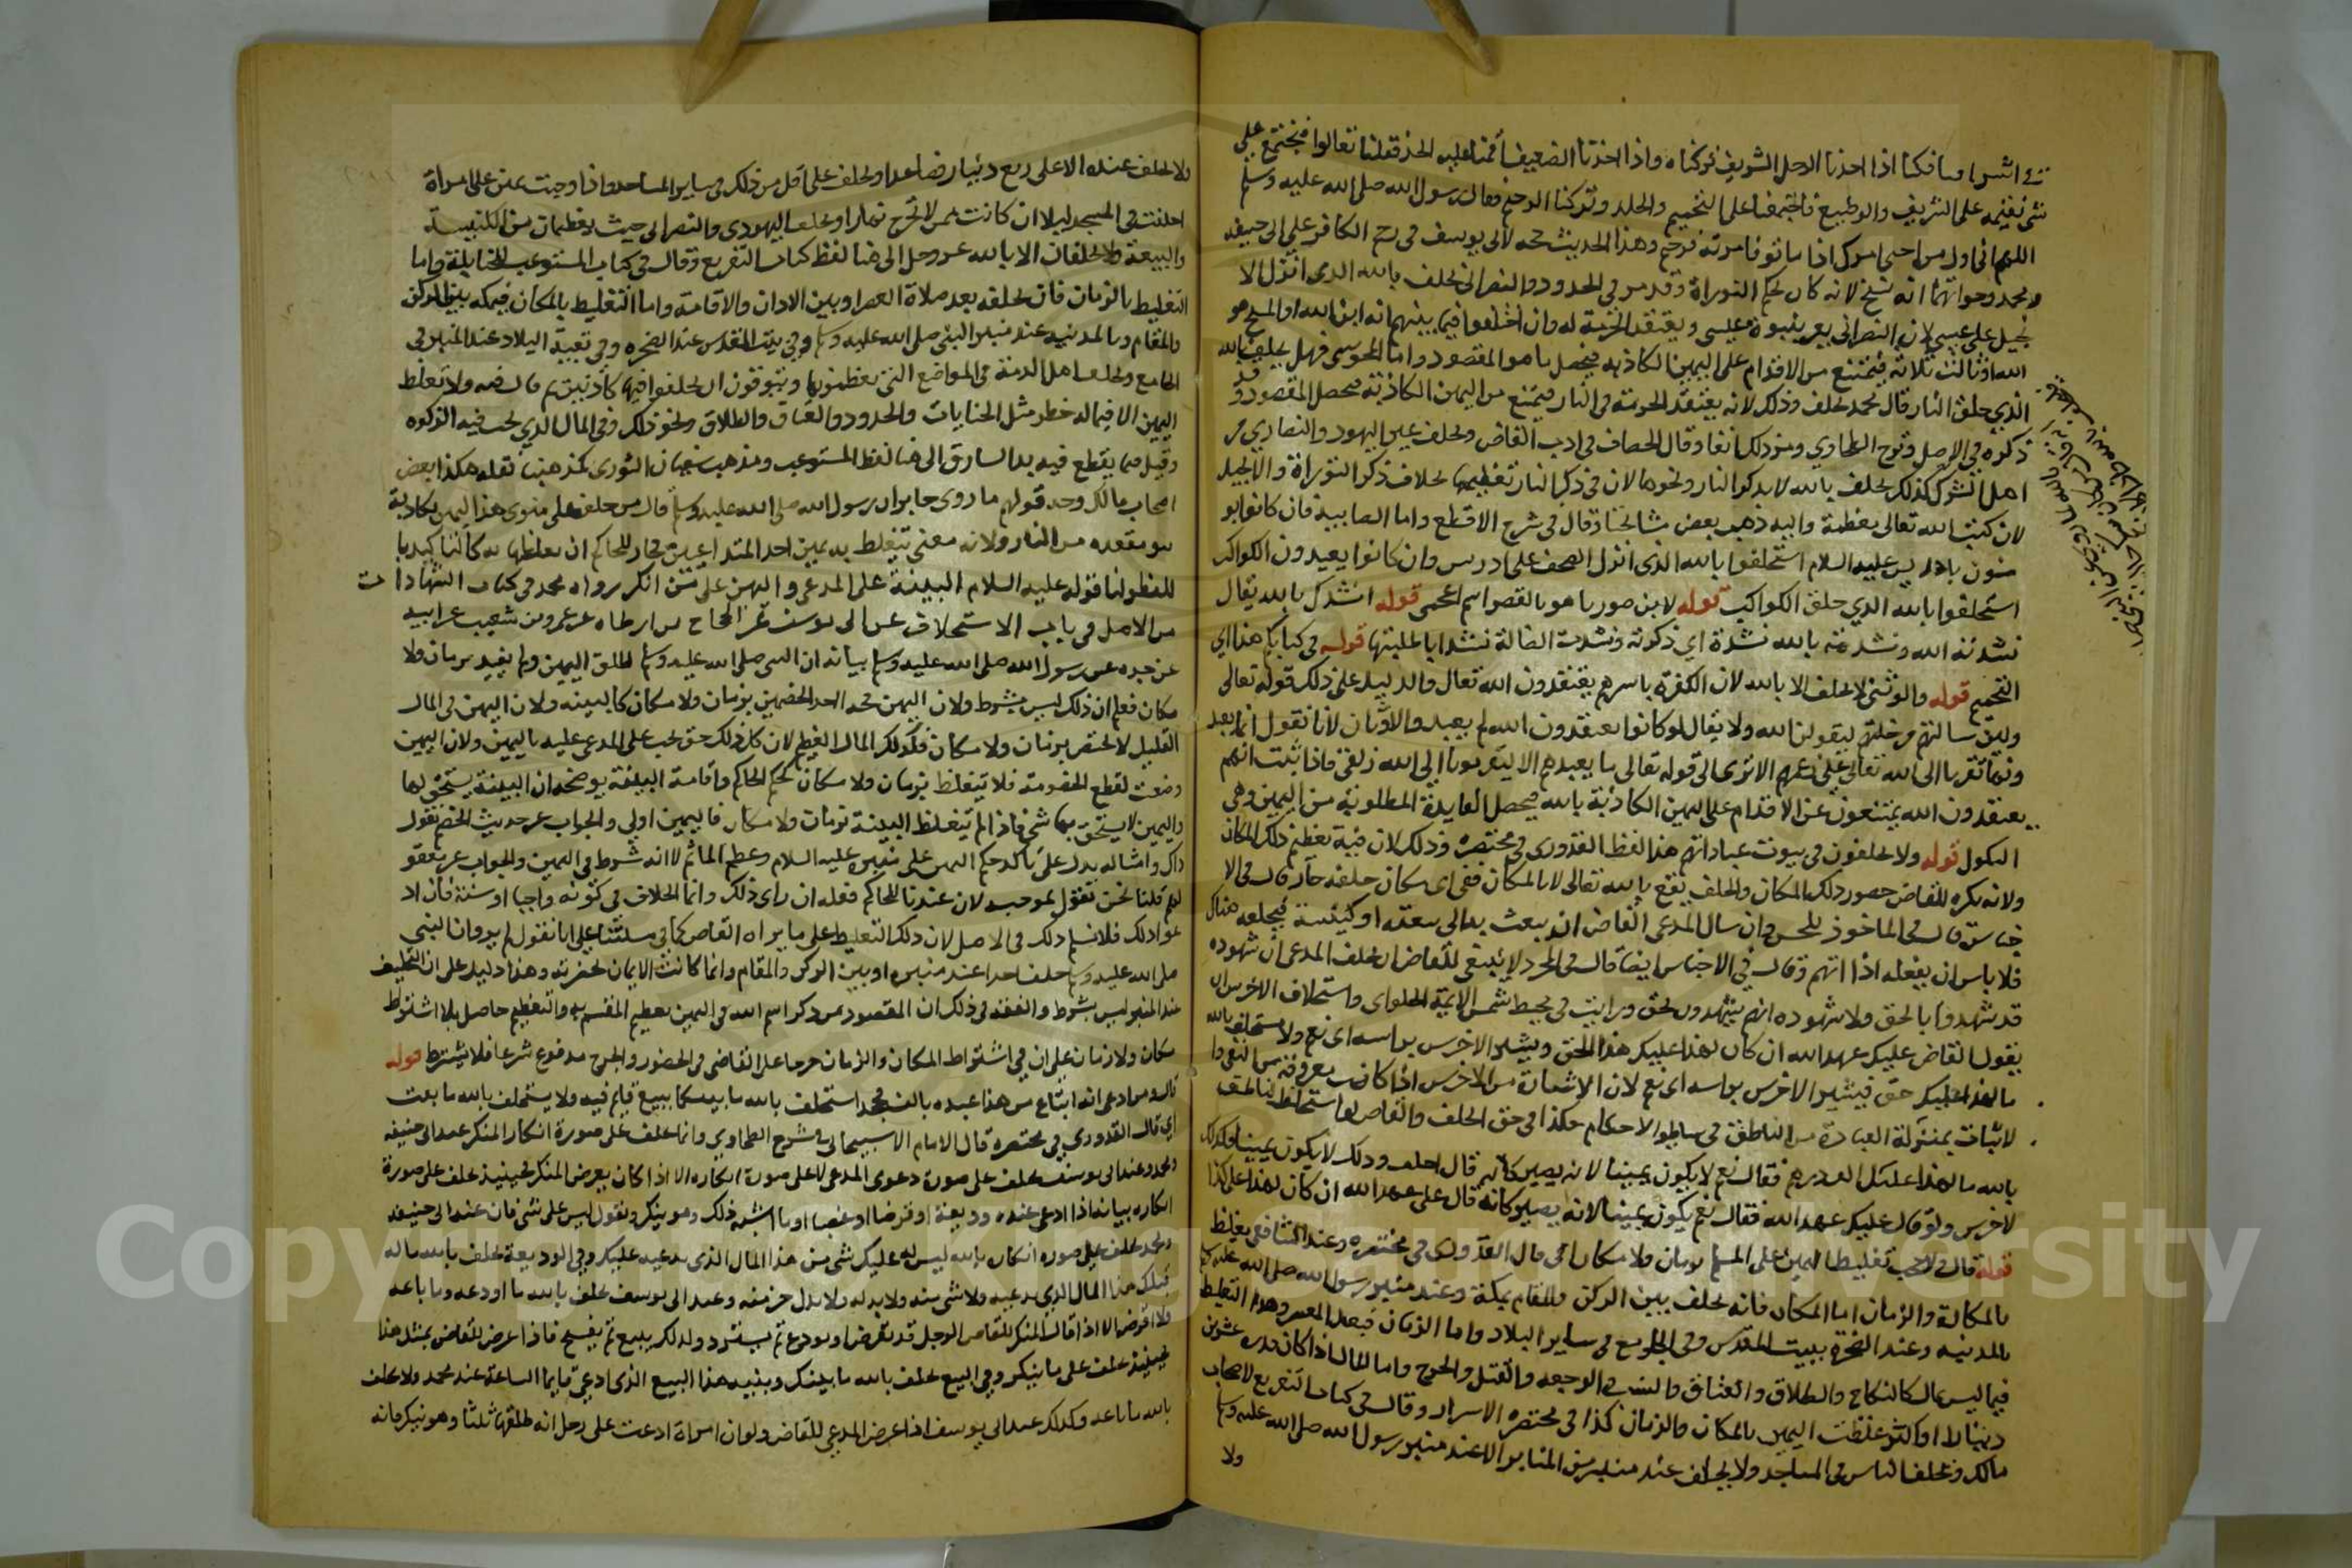 في اشرافنا فكنا اذا اخذنا الرجل الشريف تركناه واذا اخذنا الضعيف أقمنا عليه الحد فقلنا تعالوا فنجتمع على
شي نقيمه على الشريف والوضيع فاجتمعنا على التحميم والجلد وتركنا الرجم فقال رسول الله صلى الله عليه وسلم
اللهم اني اول من احيى امرك اذ اماتوه فامر به فرجم وهذا الحديث حجة لابي يوسف في رجم الكافر على ابي حنيفة
ومحمد وجوابهما انه نسخ لانه كان بحكم التوراة وقد مر في الحدود والنصراني يحلف بالله الذي انزل الا
نجيل على عيسى لان النصراني يعير بنبوة عيسى ويعتقد الحرمة له وان اختلفوا فيما بينهم انه ابن الله او المسيح هو
الله او ثالث ثلاثة فيمتنع من الاقدام على اليمين الكاذبة فيحصل ما هو المقصود واما المجوسي فهل يحلف بالله
الذي خلق النار قال محمد يحلف وذلك لانه يعتقد الحرمة في النار فيمتنع من اليمين الكاذبة فيحصل المقصود وقد
ذكره في الاصل وشرح الطحاوي ومر ذلك انفا وقال الخصاف في ادب القاضي ويحلف غير اليهود والنصارى من
اهل الشرك كذلك يحلف بالله لا يذكر النار ونحوها لان في ذكر النار تعظيمها بخلاف ذكر التوراة والانجيل
لان كتب الله تعالى معظمة واليه ذهب بعض مشايخنا وقال في شرح الاقطع واما الصابية فان كانوا يو
منون بادريس عليه السلام استحلفوا بالله الذي انزل الصحف على ادريس وان كانوا يعبدون الكواكب
استحلفوا بالله الذي خلق الكواكب قوله لابن صوريا هو بالقصر اسم اعجمي قوله انشدك بالله يقال
نشدتك الله ونشدته بالله نشدة اي ذكرته ونشدت الضالة نشدا اي طلبتها قوله في كتابكم هذا اي
التحميم قوله والوثني لا يحلف الا بالله لان الكفرة باسرهم يعتقدون الله تعالى والدليل على ذلك قوله تعالى
ولئن سالتهم من خلقهم ليقولن الله ولا يقال لو كانوا يعتقدون الله لم يعبدوا الاوثان لانا نقول انما يعبد
ونها تقربا الى الله تعالى على زعمهم الا ترى الى قوله تعالى ما نعبدهم الا ليقربونا الى الله زلفى فاذا ثبت انهم
يعتقدون الله يمتنعون عن الاقدام على اليمين الكاذبة بالله فيحصل الفايدة المطلوبة من اليمين وهي
النكول قوله ولا يحلفون في بيوت عباداتهم هذا لفظ القدوري في مختصره وذلك لان فيه تعظيم ذلك المكان
ولانه يكره للقاضي حضور ذلك المكان والحلف يقع بالله تعالى لا بالمكان ففي اي مكان حلفه جاز قال في الا
جناس قال في الماخوذ للحسن وان سال المدعي القاضي ان يبعث به الى بيعته او كنيسة فيحلفه هناك
فلا باس ان يفعله اذا اتهمه وقال في الاجناس ايضا قال في المجرد لا ينبغي للقاضي ان يحلف المدعي ان شهوده
قد شهدوا بالحق ولا شهوده انهم يشهدون بحق ورايت في محيط شمس الايمة الحلواي واستحلاف الاخرس ان
يقول القاضي عليك عهد الله ان كان لهذا عليك هذا الحق ويشير الاخرس براسه اي نعم ولا يستحلف بالله
ما لهذا عليك حق فيشير الاخرس براسه اي نعم لان الاشارة من الاخرس اذا كانت معروفة
لاثبات بمنزلة العبارة من الناطق في ساير الاحكام هكذا في حق الحلف والقاضي لو استحلف الناطق
بالله ما لهذا عليك الف درهم فقال نعم لا يكون يمينا لانه يصير كانه قال احلف وذلك لا يكون يمينا وكذلك
الاخرس ولو قال عليك عهد الله فقال نعم يكون يمينا لانه يصير كانه قال علي عهد الله ان كان لهذا علي كذا
قوله قال ولا يجب تغليظ اليمين على المسلم بزمان ولا مكان اي قال القدوري في مختصره وعند الشافعي يغلظ
بالمكان والزمان اما المكان فانه يحلف بين الركن والمقام بمكة وعند منبر رسول الله صلى الله عليه وسلم
بالمدينة وعند الصخرة ببيت المقدس وفي الجوامع في ساير البلاد واما الزمان فبعد العصر وهذا التغليظ
فيما ليس بمال كالنكاح والطلاق والعتاق والنسب والرجعة والقتل والجرح واما المال اذا كان قدره عشرين
دينارا او اكثر غلظت اليمين بالمكان والزمان كذا في مختصره الاسرار وقال في كتاب التفريع لاصحاب
مالك ويحلف الناس في المساجد ولا يحلف عند منبر من المنابر الا عند منبر رسول الله صلى الله عليه وسلم
ولا
ولا يحلف عنده الا على ربع دينار فصاعدا ويحلف على اقل من ذلك في ساير المساجد واذا وجبت يمين على امراة
احلفت في المسجد ليلا ان كانت ممن لا تخرج نهارا ويحلف اليهودي والنصراني حيث يعظمان من الكنيسة
والبيعة ولا يحلفان الا بالله عز وجل الى هنا لفظ كتاب التفريع وقال في كتاب المستوعب للحنابلة واما
التغليظ بالزمان فان يحلفه بعد صلاة العصر او بين الاذان والاقامة واما التغليظ بالمكان فبمكة بين الركن
والمقام وبالمدينة عند منبر النبي صلى الله عليه وسلم وفي بيت المقدس عند الصخرة وفي بقية البلاد عند المنبر في
الجامع ويحلف اهل الذمة في المواضع التي يعظمونها ويتوقون ان يحلفوا فيها كاذبين ثم قال فيه ولا تغلظ
اليمين الا فيما له خطر مثل الجنايات والحدود والعتاق والطلاق ونحو ذلك وفي المال الذي تجب فيه الزكوة
وقيل فيما يقطع فيه يد السارق الى هنا لفظ المستوعب ومذهب سفيان الثوري كمذهبنا نقله هكذا بعض
اصحاب مالك وجه قولهم ما روى جابر ان رسول الله صلى الله عليه وسلم قال من حلف على منبري هذا بيمين كاذبة
تبوا مقعده من النار ولانه معنى تتغلظ به يمين احد المتداعيين فجاز للحاكم ان يغلظها به كالتاكيد با
للفظ ولنا قوله عليه السلام البينة على المدعي واليمين على من انكر رواه محمد في كتاب الشهادات
من الاصل في باب الاستحلاف عن ابي يوسف عن الحجاج بن ارطاه عن عمرو بن شعيب عن ابيه
عن جده عن رسول الله صلى الله عليه وسلم بيانه ان النبي صلى الله عليه وسلم اطلق اليمين ولم يقيد بزمان ولا
مكان فعلم ان ذلك ليس بشرط ولان اليمين حجة احد الخصمين بزمان ولا مكان كالبينة ولان اليمين في المال
القليل لا يختص بزمان ولا مكان فكذلك المال العظيم لان كل ذلك حق يجب على المدعى عليه باليمين ولان اليمين
وضعت لقطع الخصومة فلا تتغلظ بزمان ولا مكان كحكم الحاكم واقامة البينة يوضحه ان البينة يستحق بها
واليمين لا يستحق بها شي فاذا لم تتغلظ البينة بزمان ولا مكان فاليمين اولى والجواب عن حديث الخصم نقول
ذاك وامثاله يدل على تاكد حكم اليمين على منبره عليه السلام وعظم الماثم لا انه شرط في اليمين والجواب عن معقو
لهم قلنا نحن نقول بموجبه لان عندنا للحاكم فعله ان راى ذلك وانما الخلاف في كونه واجبا او سنة فان اد
عوا ذلك فلا نسلم ذلك في الاصل لان ذلك التغليظ على ما يراه القاضي كما في مسئلتنا على انا نقول لم يرو ان النبي
صلى الله عليه وسلم حلف احدا عند منبره او بين الركن والمقام وانما كانت الايمان بحضرته وهذا دليل على ان التحليف
عند المنبر ليس بشرط والفقه في ذلك ان المقصود من ذكر اسم الله في اليمين تعظيم المقسم به والتعظيم حاصل بلا اشتراط
مكان ولا زمان على ان في اشتراط المكان والزمان حرجا على القاضي في الحضور والحرج مدفوع شرعا فلا يشترط قوله
قال ومن ادعى انه ابتاع من هذا عبده بالف فجحد استحلف بالله ما بينكما بيع قايم فيه ولا يستحلف بالله ما بعت
اي قال القدوري في مختصره قال الامام الاسبيجابي في شرح الطحاوي وانما يحلف على صورة انكار المنكر عند ابي حنيفة
ومحمد وعند ابي يوسف يحلف على صورة دعوى المدعي لا على صورة انكاره الا اذا كان يعرض المنكر فحينئذ يحلف على صورة
انكاره بيانه اذا ادعى عنده وديعة او قرضا او غصبا او ما اشبه ذلك وهو ينكر ونقول ليس على شي فان عند ابي حنيفة
ومحمد يحلف على صورة انكاره بالله ليس له عليك شي من هذا المال الذي يدعيه عليك وفي الوديعة يحلف بالله ما له
قبلك هذا المال الذي يدعيه ولا شي منه ولا بدله ولا بدل جزء منه وعند ابي يوسف يحلف بالله ما اودعه وما باعه
ولا اقرض الا اذا قال المنكر للقاضي الرجل قد يقرض او يودع ثم يسترد وكذلك يبيع ثم يفسخ فاذا عرض للقاضي بمثل هذا
فحينئذ يحلف على ما ينكر وفي البيع يحلف بالله ما بينك وبينه هذا البيع الذي ادعى قايما الساعة عند محمد ولا يحلف
بالله ما باعه وكذلك عند ابي يوسف اذا عرض المدعي للقاضي ولو ان امراة ادعت على رجل انه طلقها ثلثا وهو ينكر فانه
Copyright © King Saud University